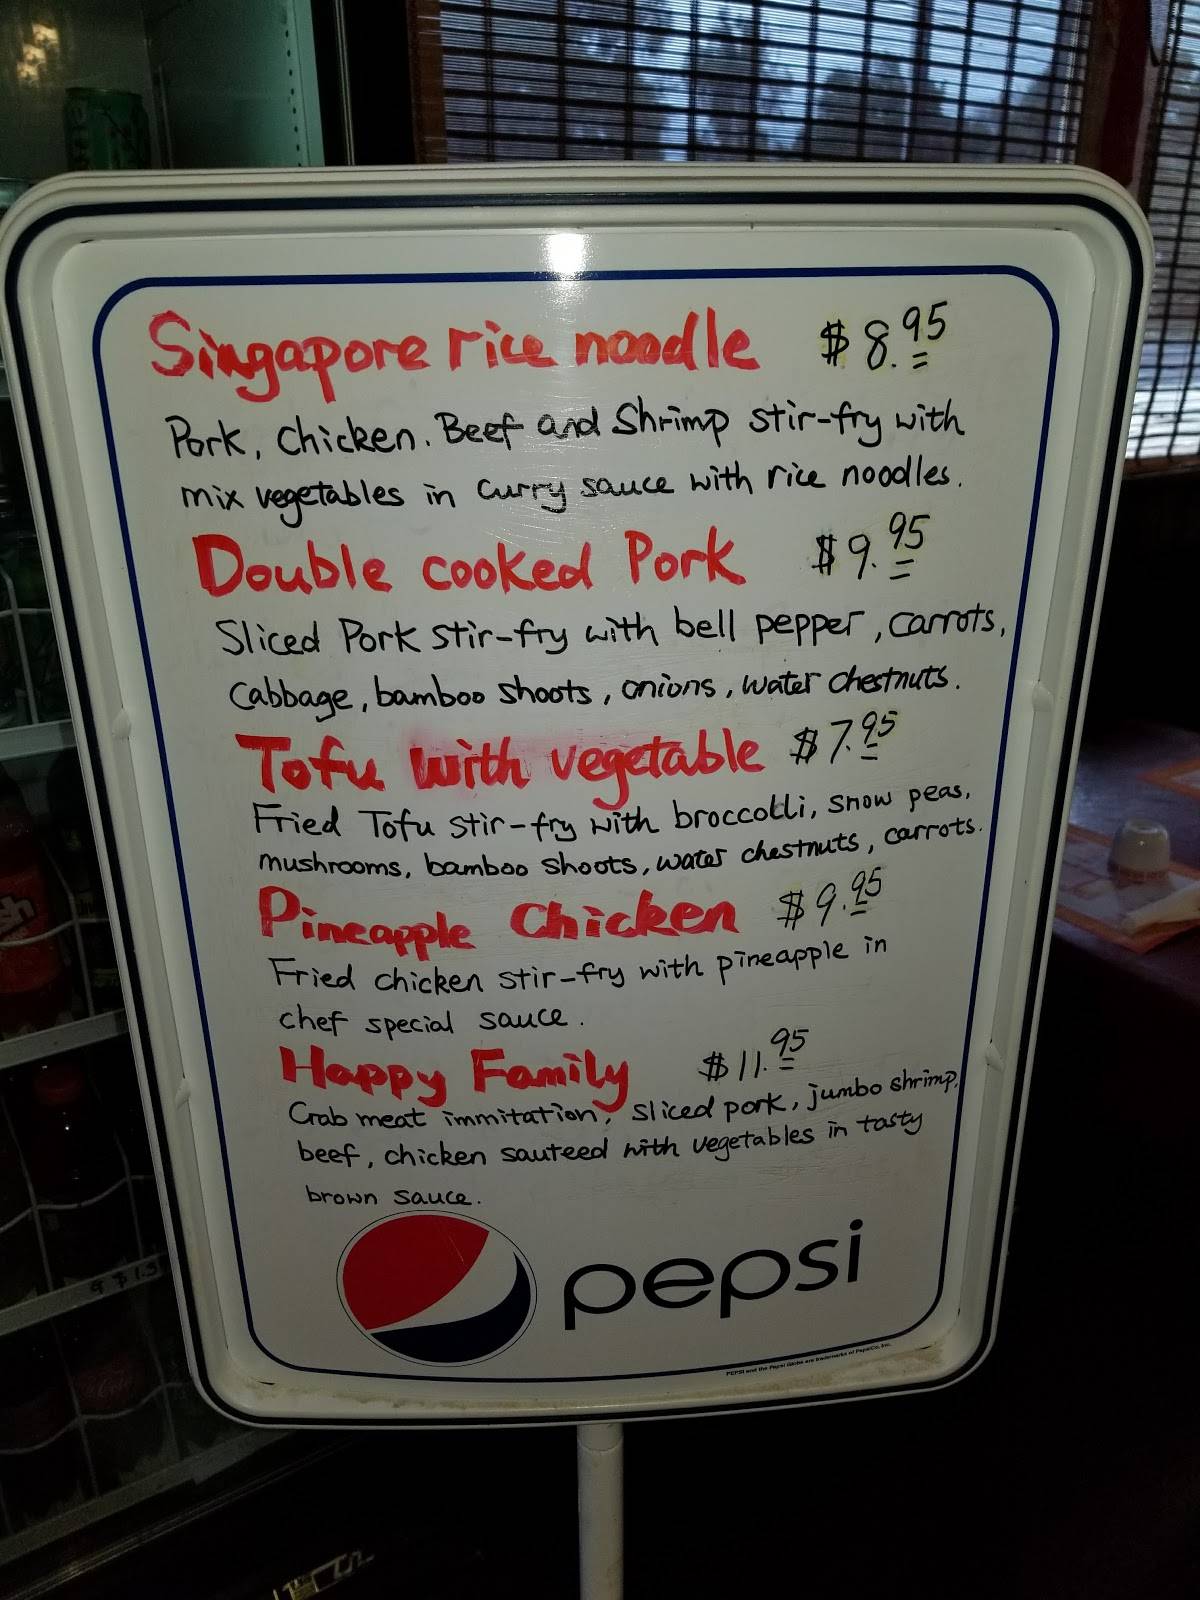 Singapore rice noodle $8.95
Pork, Chicken. Beef and Shrimp stir-fry with
mix vegetables in curry sauce with rice noodles.
Double cooked Pork $9.95
Sliced Pork stir-fry with bell pepper, carrots,
cabbage, bamboo shoots, onions, water chestnuts.
Tofu with vegetable $7.95
Fried Tofu stir-fry with broccolli, snow peas,
mushrooms, bamboo shoots, water chestnuts, carrots.
Pineapple Chicken $9.95
Fried chicken stir-fry with pineapple in
chef special sauce.
Happy Family $11.95
Crab meat immitation, sliced pork, jumbo shrimp,
beef, chicken sauteed with vegetables in tasty
brown sauce.
pepsi
PEPSI and the Pepsi Globe are trademarks of PepsiCo, Inc.